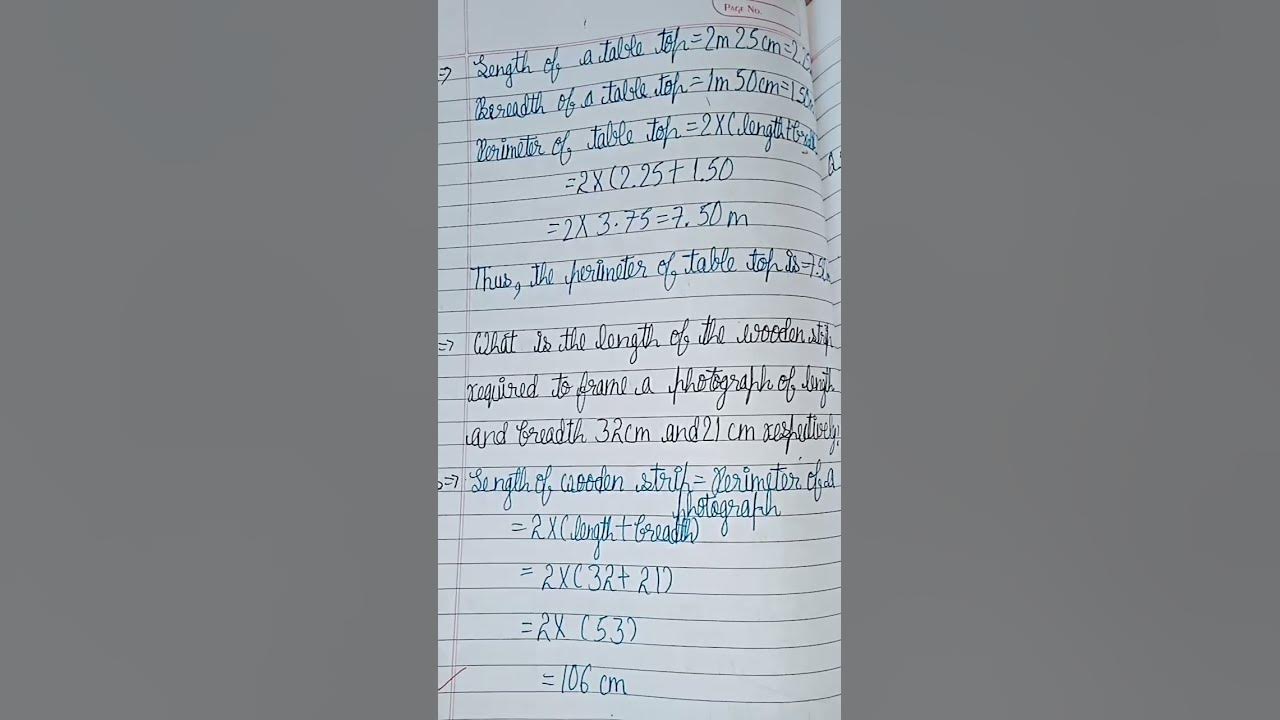 PAGE NO.
⇒ Length of a table top = 2m 25cm = 2.25
Breadth of a table top = 1m 50cm = 1.50m
Perimeter of table top = 2×(length + bread
= 2×(2.25 + 1.50
= 2× 3.75 = 7.50 m
Thus, the perimeter of table top is = 7.50m
⇒ What is the length of the wooden strip
required to frame a photograph of length
and breadth 32cm and 21 cm respectively.
⇒ Length of wooden strip = Perimeter of a
photograph
= 2×(length + breadth)
= 2×(32 + 21)
= 2× (53)
= 106 cm